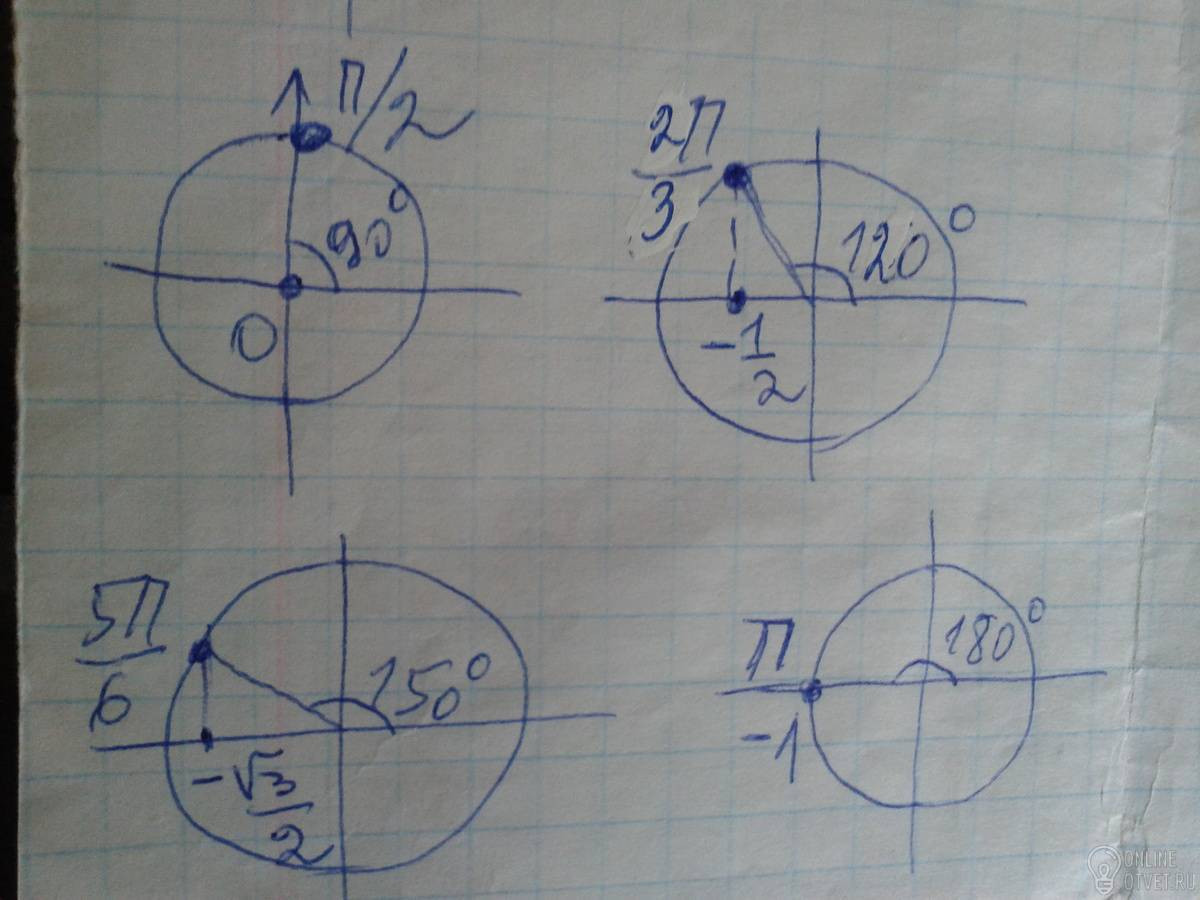 П/2
90°
0
2П
3
120°
-1
2
5П
6
150°
-√3
2
П
180°
-1
ONLINE
OTVET.RU